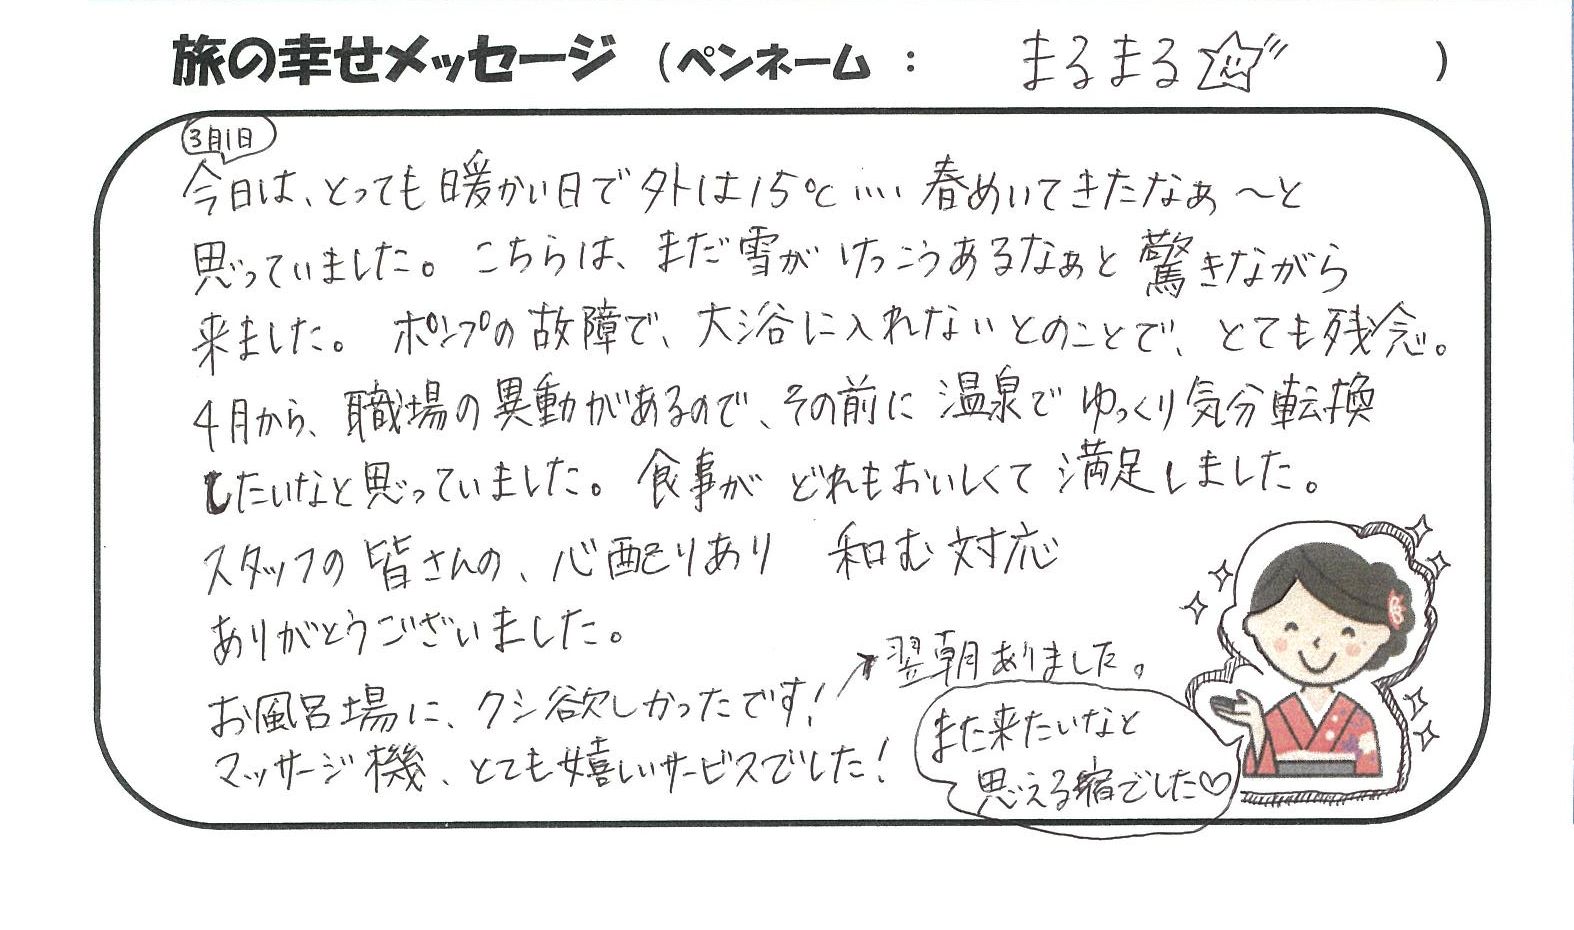 旅の幸せメッセージ (ペンネーム : まるまる☆)
3月1日
今日は、とっても暖かい日で外は15℃…. 春めいてきたなぁ～と
思っていました。こちらは、まだ雪がけっこうあるなぁと驚きながら
来ました。ポンプの故障で、大浴に入れないとのことで、とても残念。
4月から、職場の異動があるので、その前に温泉でゆっくり気分転換
したいなと思っていました。食事がどれもおいしくて満足しました。
スタッフの皆さんの、心配りあり 和む対応
ありがとうございました。
お風呂場に、クシ欲しかったです! ↗翌朝ありました。
マッサージ機、とても嬉しいサービスでした!
また来たいなと
思える宿でした♡